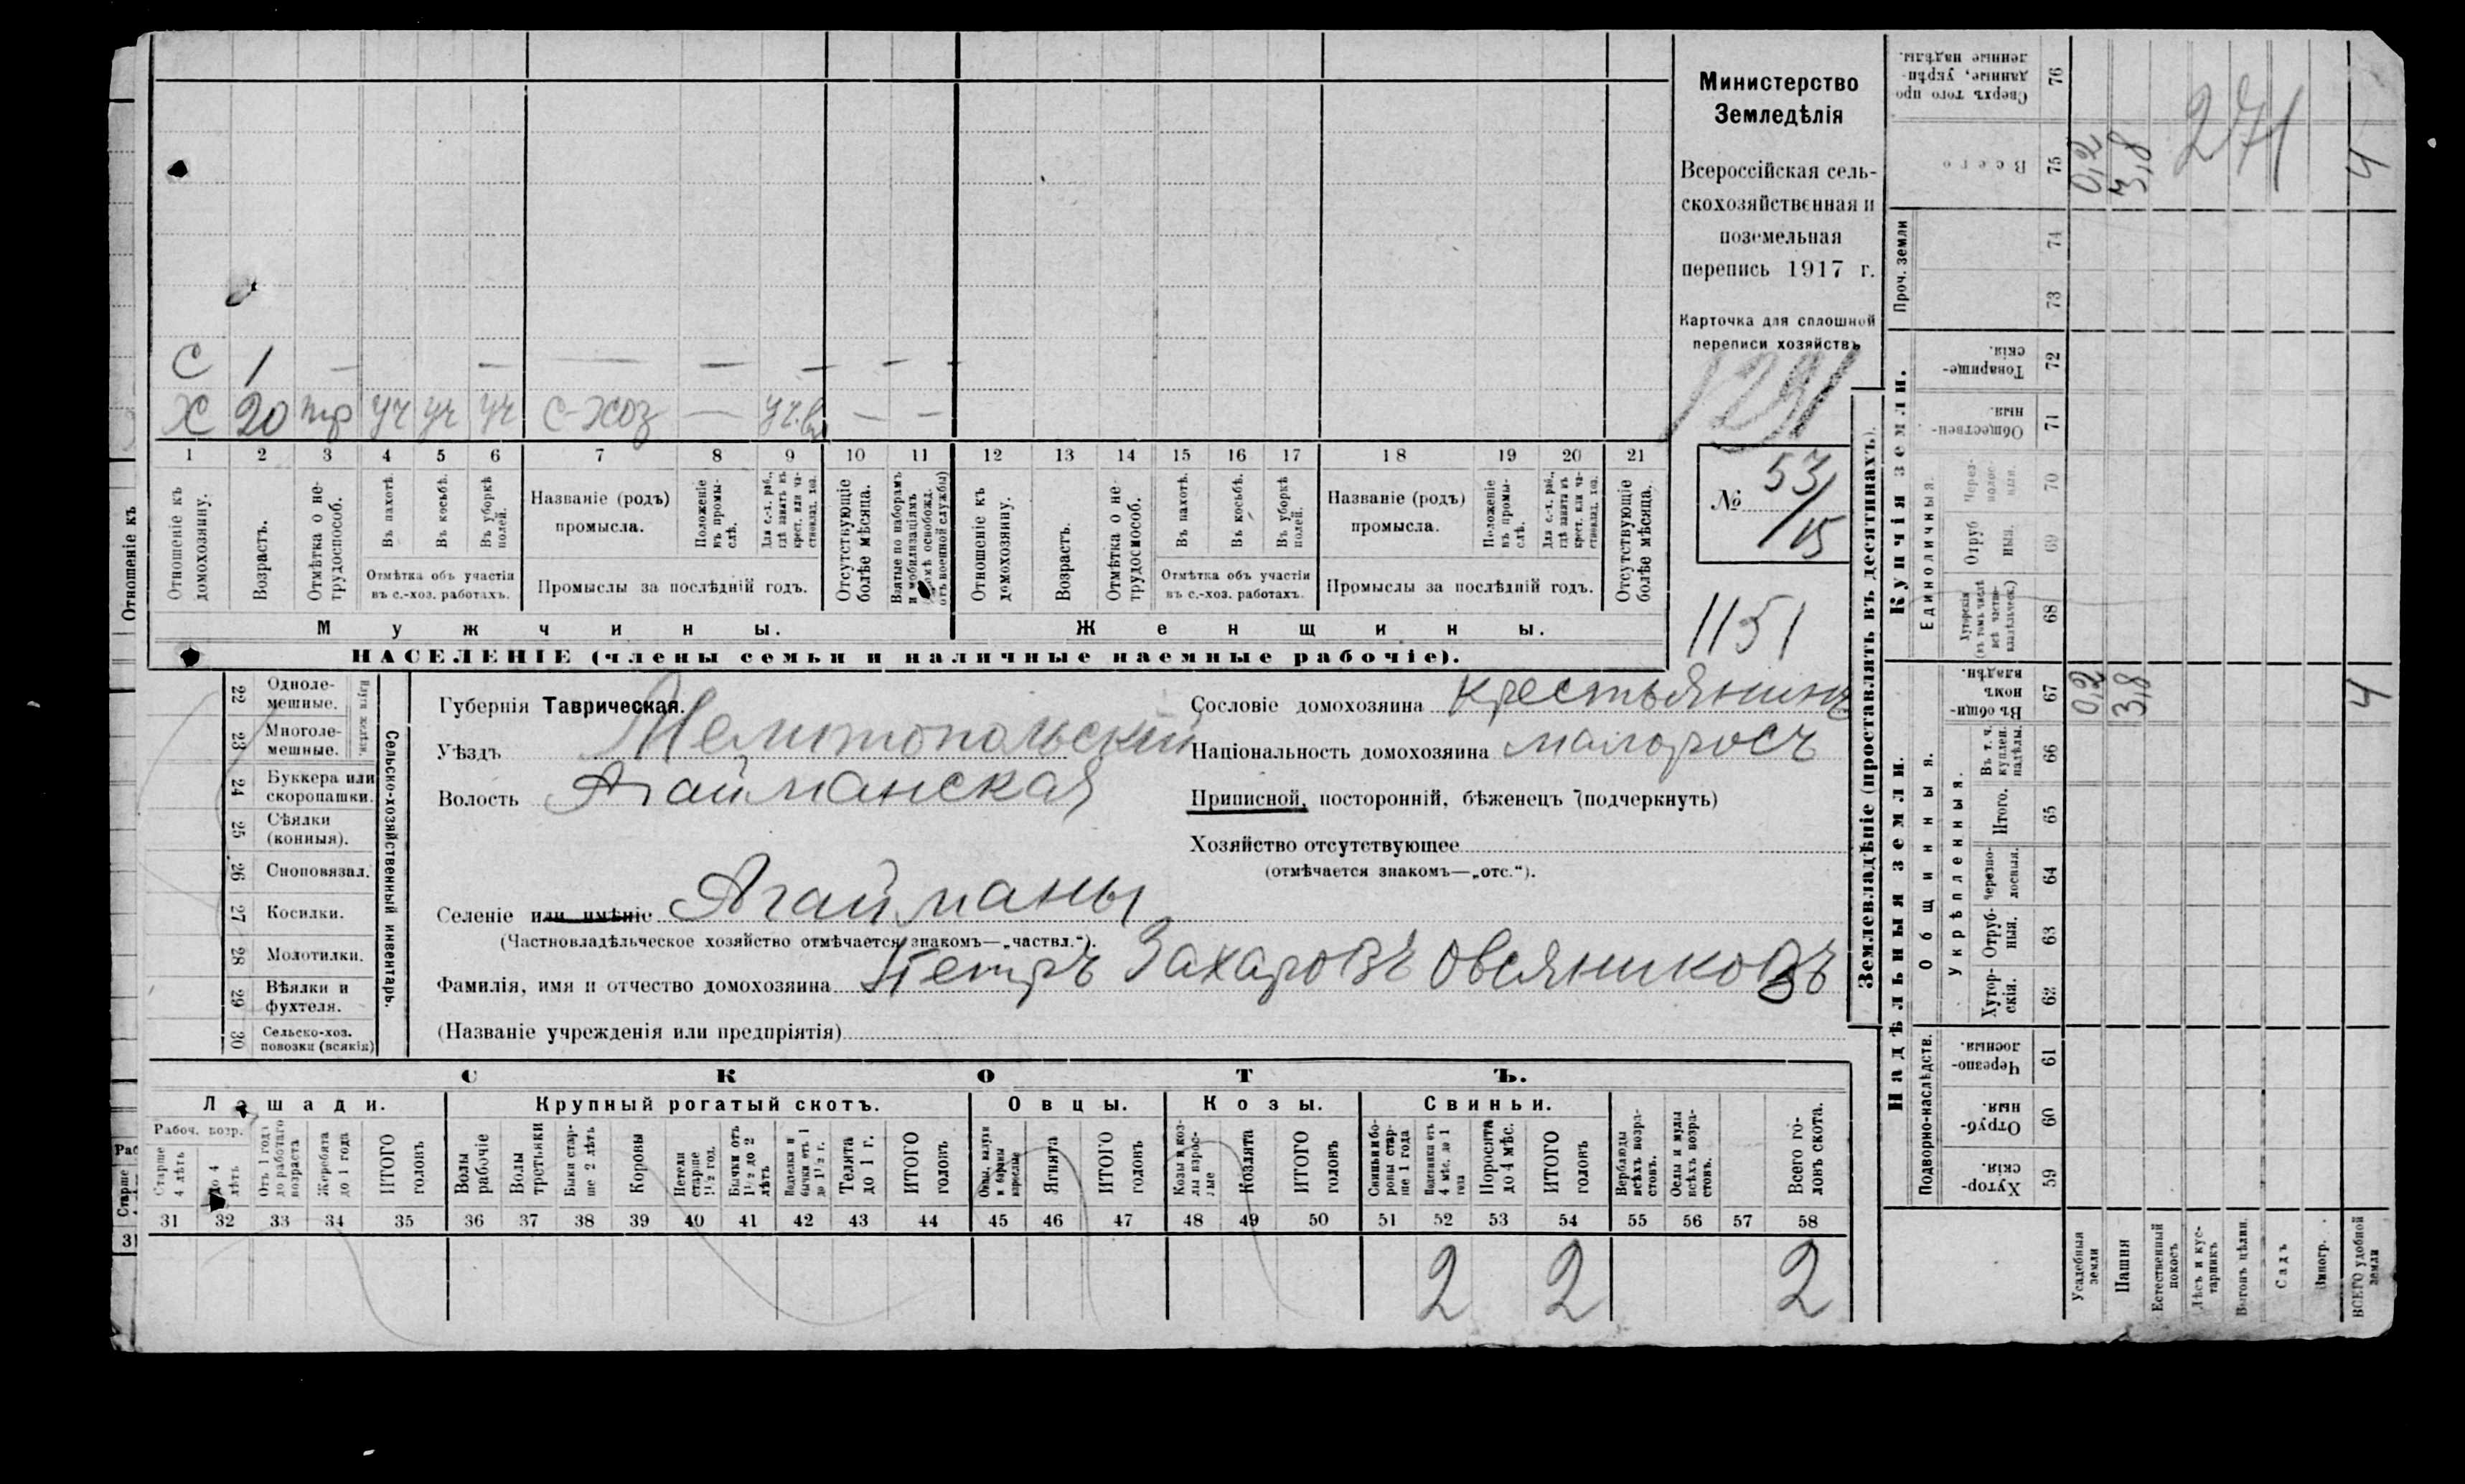 С 1 — — — — — — —
Х 20 тр уч уч уч с-хоз — уч.вл — —
1 2 3 4 5 6 7 8 9 10 11 12 13 14 15 16 17 18 19 20 21
Отношеніе къ домохозяину.
Возрастъ.
Отмѣтка о не-трудоспособ.
Въ пахотѣ.
Въ косьбѣ.
Въ уборкѣ полей.
Отмѣтка объ участіи
въ с.-хоз. работахъ.
Названіе (родъ)
промысла.
Положеніе въ промы-слѣ.
Для с.-х. раб., гдѣ занятъ въ крест. или ча-стновлад. хоз.
Промыслы за послѣдній годъ.
Отсутствующіе болѣе мѣсяца.
Взятые по наборамъ и мобилизаціямъ
отъ военной службы)
Отношеніе къ домохозяину.
Возрастъ.
Отмѣтка о не-трудоспособ.
Въ пахотѣ.
Въ косьбѣ.
Въ уборкѣ полей.
Отмѣтка объ участіи
въ с.-хоз. работахъ.
Названіе (родъ)
промысла.
Положеніе въ промы-слѣ.
Для с.-х. раб., гдѣ занятъ въ крест. или ча-стновлад. хоз.
Промыслы за послѣдній годъ.
Отсутствующіе болѣе мѣсяца.
Мужчины.
Женщины.
НАСЕЛЕНІЕ (члены семьи и наличные наемные рабочіе).
Министерство
Земледѣлія
Всероссійская сель-
скохозяйственная и
поземельная
перепись 1917 г.
Карточка для сплошной
переписи хозяйствъ
1291
№ 53/15
1151
22 Одноле-
мешные.
23 Многоле-
мешные.
24 Буккера или
скоропашки.
25 Сѣялки
(конныя).
26 Сноповязал.
27 Косилки.
28 Молотилки.
29 Вѣялки и
фухтеля.
30 Сельско-хоз.
повозки (всякія)
Сельско-хозяйственный инвентарь.
Губернія Таврическая.
Уѣздъ Мелитопольскій
Волость Агайманская
Селеніе или имѣніе Агайманы
(Частновладѣльческое хозяйство отмѣчается знакомъ—„частвл.“).
Фамилія, имя и отчество домохозяина Петръ Захаровъ Овсяниковъ
(Названіе учрежденія или предпріятія)
Сословіе домохозяина крестьянинъ
Національность домохозяина малоросъ
Приписной, посторонній, бѣженецъ (подчеркнуть)
Хозяйство отсутствующее
(отмѣчается знакомъ—„отс.“).
СКОТЪ.
Лошади. Крупный рогатый скотъ. Овцы. Козы. Свиньи.
Рабоч. возр.
Старше 4 лѣтъ
до 4 лѣтъ
Отъ 1 года до рабочаго возраста
Жеребята до 1 года
ИТОГО головъ
Волы рабочіе
Волы третьяки
Быки стар-ше 2 лѣтъ
Коровы
Нетели старше 1½ год.
Бычки отъ 1½ до 2 лѣтъ
Телята до 1 г.
ИТОГО головъ
Ягнята
ИТОГО головъ
Козы и коз-лы взрос-лые
Козлята
ИТОГО головъ
Свиньи и бо-ровы стар-ше 1 года
Поросята до 4 мѣс.
ИТОГО головъ
Верблюды всѣхъ возра-стовъ.
Ослы и мулы всѣхъ возра-стовъ.
Всего го-ловъ скота.
31 32 33 34 35 36 37 38 39 40 41 42 43 44 45 46 47 48 49 50 51 52 53 54 55 56 57 58
2 2 2
Землевладѣніе (проставлять въ десятинахъ).
Купчія земли.
Надѣльныя земли.
Проч. земли
Единоличныя.
Общинныя.
Укрѣпленныя.
Подворно-наслѣдств.
Сверхъ того про-
данные, укрѣп-
ленные надѣлы. 76
Всего 75 0,2 3,8 4
271
74
73
Товарище-
скія. 72
Обществен-
ныя. 71
Через-
полос-
ныя. 70
Отруб
ныя. 69
Хуторскія
(въ томъ числѣ
всѣ частно-
владѣльческ.) 68
Въ общи-
номъ
владѣн. 67 0,2 3,8 4
Въ т. ч.
куплен.
надѣлы. 66
Итого. 65
Черезпо-
лосныя. 64
Отруб-
ныя. 63
Хутор-
скія. 62
Черезпо-
лосныя. 61
Отруб-
ныя. 60
Хутор-
скія. 59
Усадебныя земли
Пашня
Естественный покосъ
Лѣсъ и кус-тарникъ
Выгонъ цѣлин.
Садъ
Виногр.
ВСЕГО удобной земли
Отношеніе къ
Старше
31